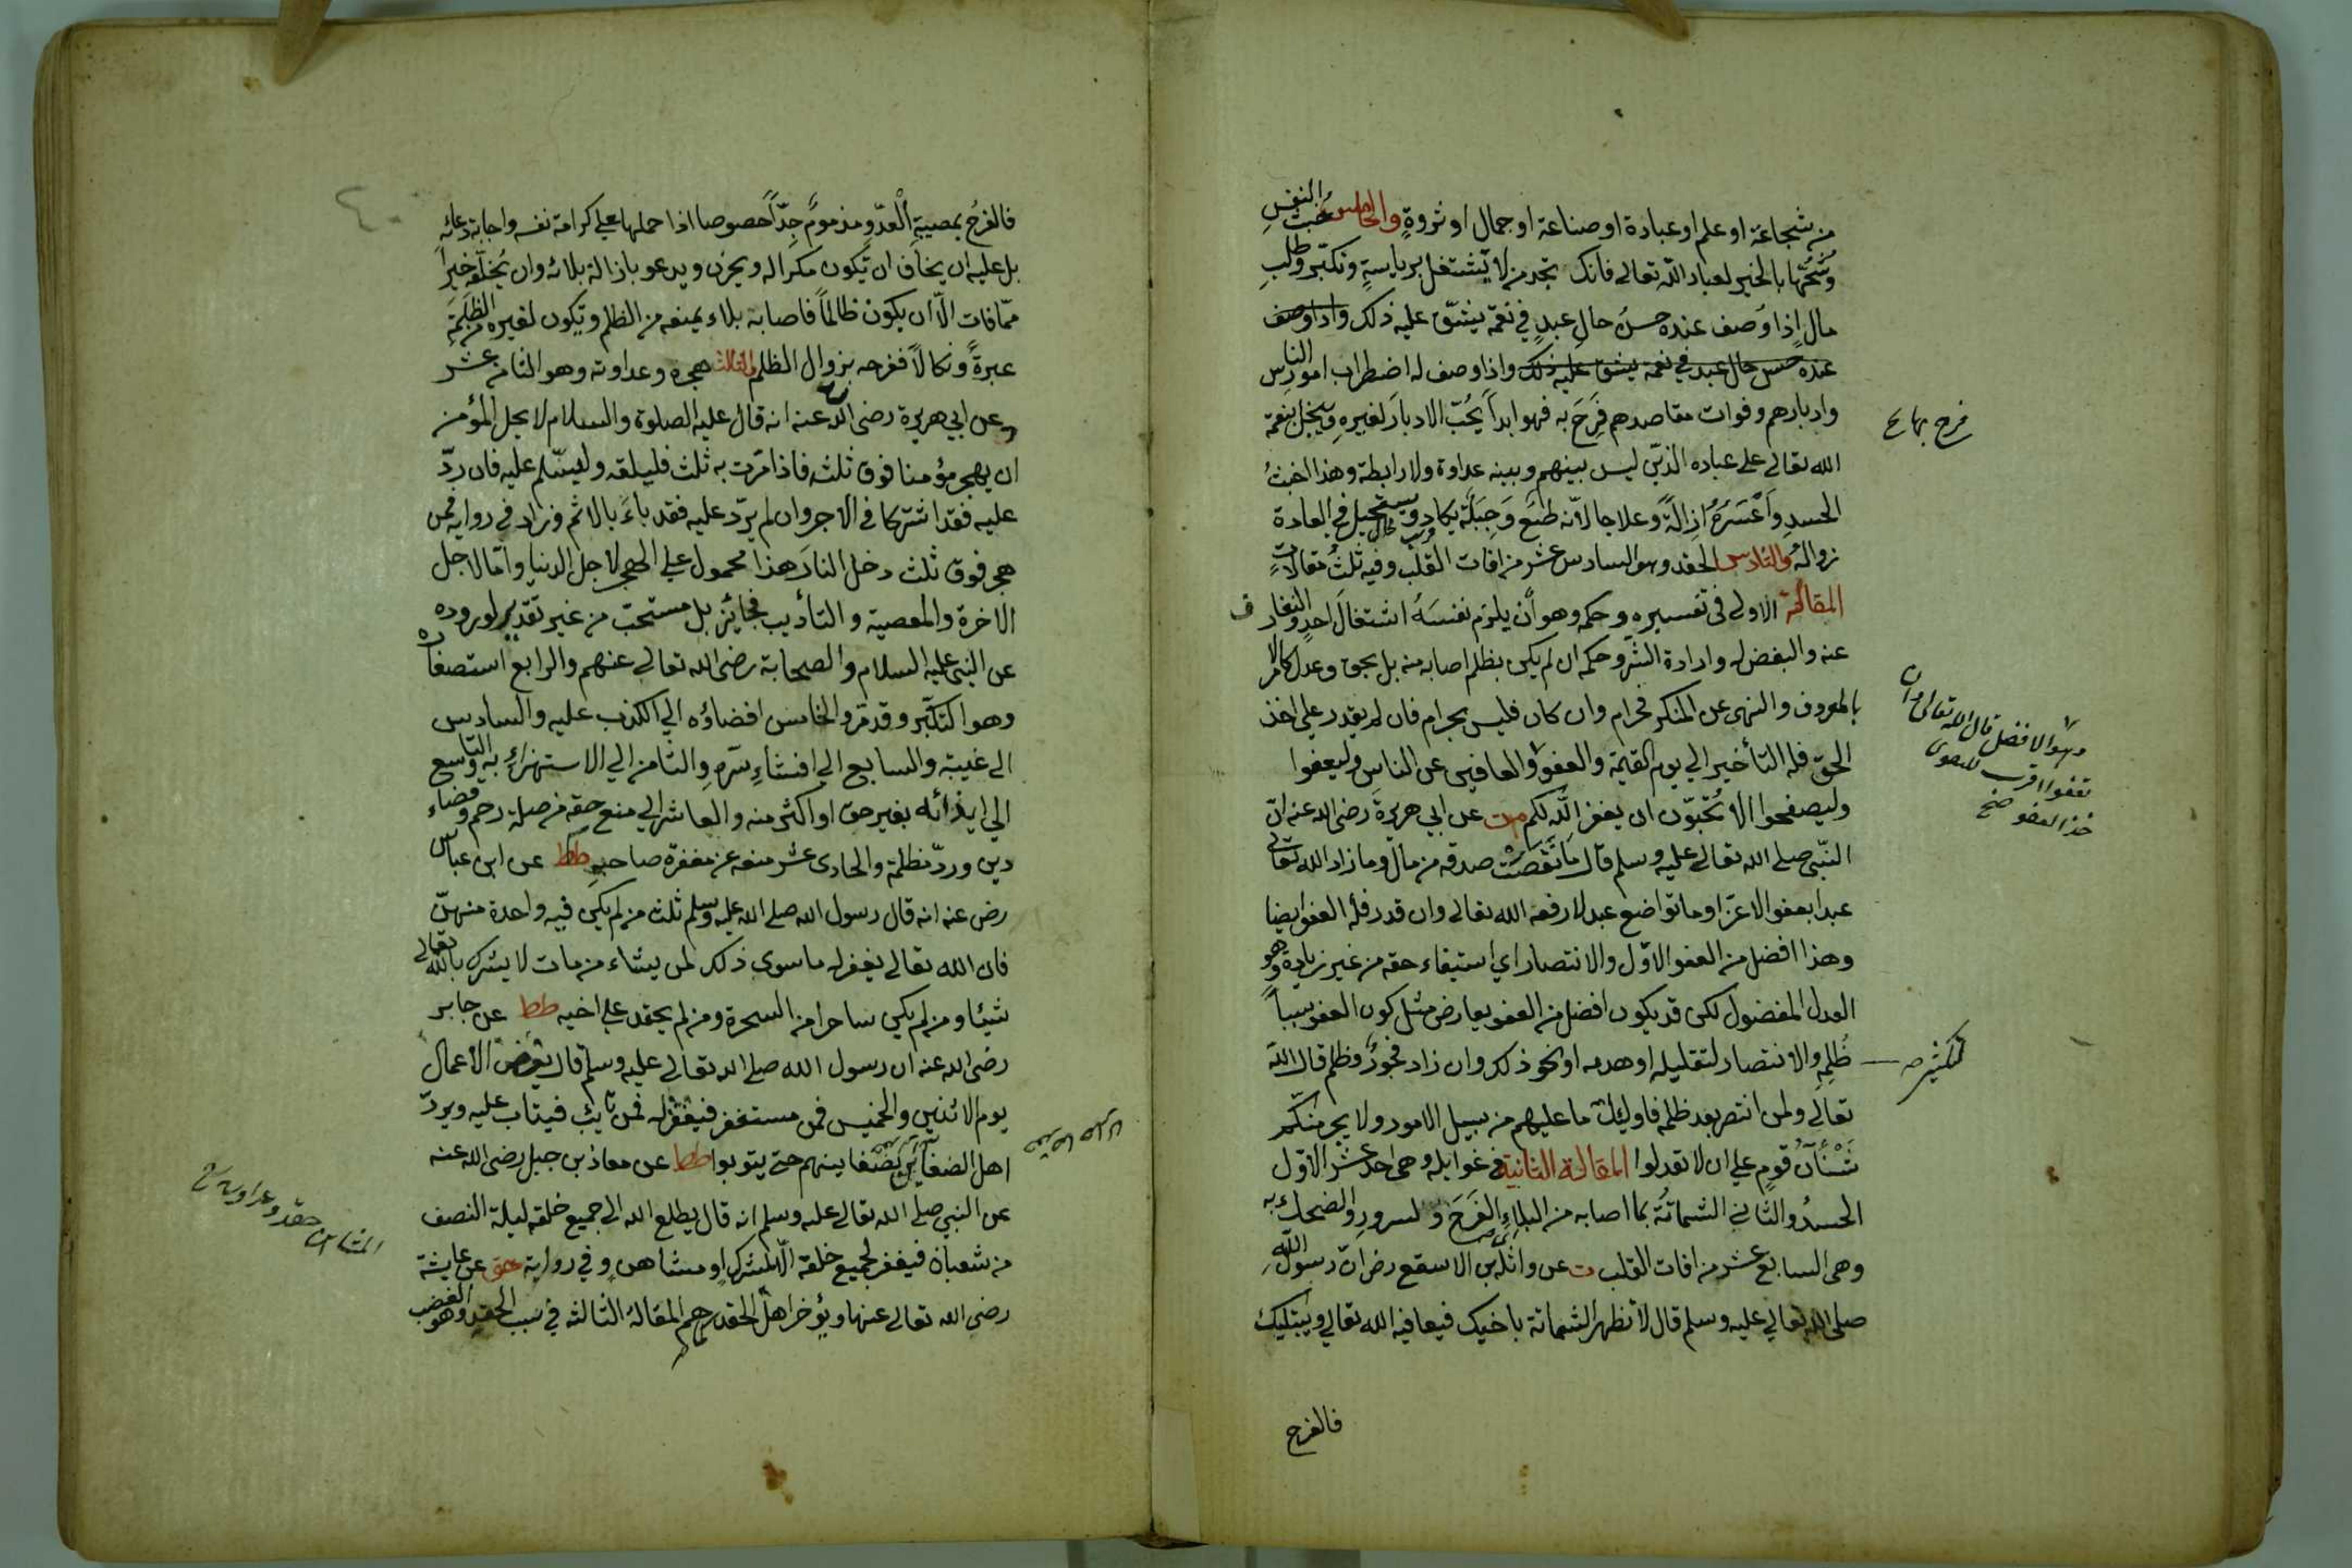 من شجاعة او علم او عبادة او صناعة او جمال او ثروةٍ والخامس خُبث النفسِ
وشُحّها بالخير لعباد الله تعالى فانك تجد من لا يشتغل برياسةٍ وتكبّر وطلبِ
مالٍ اذا وُصف عنده حسنُ حالِ عبدٍ في نعمة يشقّ عليه ذلك واذا وصف
عنده حسن حال عبد في نعمة يشق عليه ذلك واذا وصف له اضطراب امور الناس
وادبارهم وفوات مقاصدهم فَرِحَ به فهو ابداً يُحبّ الادبارَ لغيرهِ ويبخل بنعمة
الله تعالى على عباده الذين ليس بينهم وبينه عداوة ولا رابطة وهذا اخبثُ
الحسدِ وَاَعْسَرُهُ ازالةً وعلاجا لانّه طبَع وَجِبِلّة يكاد ويستحيل في العادة
زوالهُ والسّادس الحقد وهو السادس عشر من افات القلب وفيه ثلثُ مقالاتٍ
المقالة الاولى في تفسيره وحكمه وهو أن يلزم نفسَهُ استثقالَ احدٍ والنفار
عنه والبغض له وارادة الشرّ وحكمه ان لم يكن بظلم اصابه منه بل بحق وعدل كالامر
بالمعروف والنهى عن المنكر فحرام وان كان فليس بحرام فان لم يقدر على اخذ
الحقّ فله التأخير الي يوم القيمة والعفو والعافين عن الناس وليعفوا
وليصفحوا الا تُحبّون ان يغفر اللّه لكم مت عن ابي هريرةَ رضى الله عنه انّ
النّبى صلى الله تعالى عليه وسلم قال مَا نَقَصَتْ صدقه من مال وما زاد الله تعالى
عبدا بعفو الا عزّا وما تواضع عبد لا رفعه الله تعالى وان قدر فله العفو ايضا
وهذا افضل من العفو الاوّل والانتصار اي استيفاء حقه من غير زيادة وهو
العدل المفضول لكن قد يكون افضل من العفو بعارض مثل كون العفو سبباً
ظُلمِهِ والانتصار لتقليله او هدمه او نحو ذلك وان زاد فجَورٌ وظلم قال الله
تعالى ولمن انتصر بعد ظلمه فاولئك ما عليهم من سبيل الامور ولا يجرمنكم
شَنْأنُ قومٍ على ان لا تعدلوا المقالة الثانية في غوايله وهي احد عشر الاوّل
الحسدُ والثاني الشماتةُ بما اصابه من البلاءِ الفَرَحَ والسرورِ والضحك به
وهي السابع عشر من افات القلب ت عن واثلة بن الاسقع رض ان رسول اللّهِ
صلى الله تعالي عليه وسلم قال لا تظهر الشماتة باخيك فيعافيه الله تعالي ويبتليك
فالفرح
وهو الافضل قال الله تعالى وان
تعفوا اقرب للتقوى
خذ العفو صح
لتكثير صح
فالفرحُ بمصيبةِ العدوِّ مذمومٌ جِدّاً خصوصا اذا حملها على كرامة نفسه واجابة دعائه
بل عليه ان يخاف ان تكون مكرا له ويحزن ويدعو بازالة بلائه وان يُخلفه خيراً
ممّا فات الّا ان يكون ظالماً فاصابه بلاء يمنعه من الظلم ويكون لغيره من الظلَمَة
عبرةً ونكالاً ففرحه بزوال الظلم والثالث هجره وعداوته وهو الثامن عشر
د عن ابي هريرة رضى الله عنه انه قال عليه الصلوة والسلام لا يحل لمؤمن
ان يهجر مؤمنا فوق ثلثه فاذا مرّت به ثلث فليلقه وليسلّم عليه فان ردّ
عليه فقد اشتركا في الاجر وان لم يردّ عليه فقد باءَ بالاثم وزاد في رواية فمن
هجر فوق ثلث دخل النارَ هذا محمول على الهجر لاجل الدنيا وامّا لاجل
الاخرة والمعصية والتأديب فجائز بل مستحبّ من غير تقدير لوروده
عن النبى عليه السلام والصحابة رضى الله تعالى عنهم والرابع استصغاره
وهو التكبّر وقد مرّ والخامس افضاؤه الي الكذب عليه والسادس
الى غيبته والسابع الي افشاءِ سرّهِ والثامن الي الاستهزاء به والتاسع
الي ايذائه بغير حق او اكثر منه والعاشر الي منع حقه من صلة رحم وقضاء
دين وردّ مظلمة والحادى عشر منعه عن مغفرة صاحبه طط عن ابن عباس
رض عنه انه قال رسول الله صلى الله عليه وسلم ثلث من لم يكن فيه واحدة منهنّ
فان الله تعالى يغفر له ما سوى ذلك لمن يشاء من مات لا يشرك باللّه تعالى
شيئا ومن لم يكن ساحرا من السحرة ومن لم يحقد على اخيه طط عن جابر
رضى الله عنه ان رسول الله صلى الله تعالى عليه وسلم قال تعرض الاعمال
يوم الاثنين والخميس فمن مستغفر فيغفر له فمن تايب فيتاب عليه ويردّ
اهل الضغاين بضغاينهم حتى يتوبوا طط عن معاذ بن جبل رضى الله عنه
عن النبي صلى الله تعالى عليه وسلم انه قال يطلع الله الى جميع خلقه ليلة النصف
من شعبان فيغفر لجميع خلقه الّا لمشرك او مشاحن وفي رواية هق عن عايشة
رضى الله تعالى عنها ويؤخر اهل الحقد كما هم المقالة الثالثه في سبب الحقد وهو الغضب